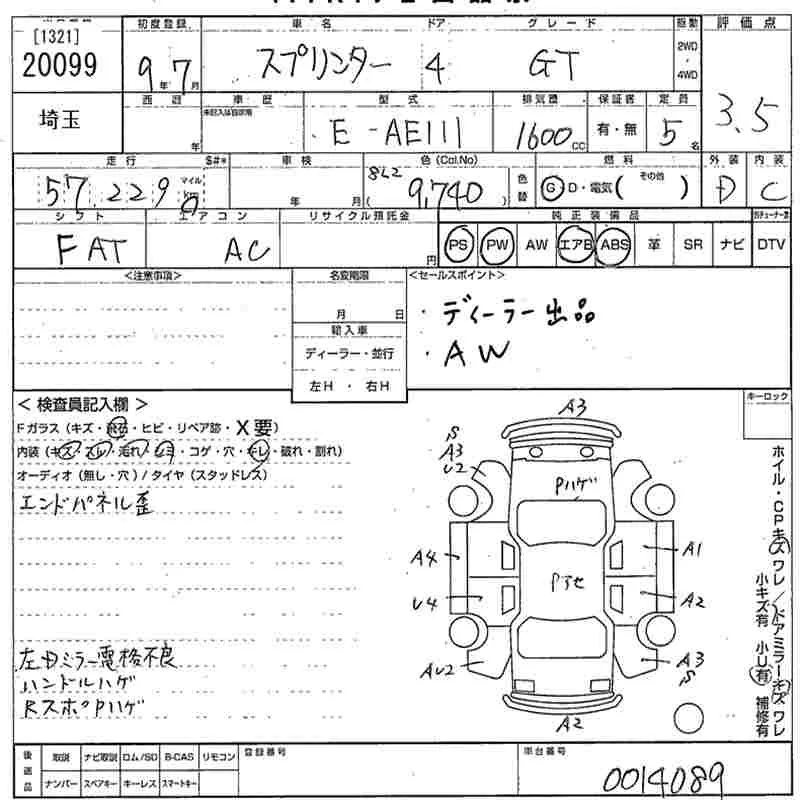 [1321]
20099
初度登録 車名 ドア グレード 駆動 評価点
9年7月 スプリンター 4 GT 2WD・4WD 3.5
埼玉
西暦 車歴 型式 排気量 保証書 定員
年 未記入は自家用 E-AE111 1600cc 有・無 5名
走行 S#* 車検 色(Col.No) 燃料 外装 内装
57,229 マイル km 年 月 8L2 (9,740) 色替 G D・電気( その他 ) D C
シフト エアコン リサイクル預託金 純正装備品
FAT AC 円 PS PW AW エアB ABS 革 SR ナビ DTV
<注意事項> 名変期限 <セールスポイント>
月 日
・ディーラー出品
輸入車
ディーラー・並行
・AW
左H ・ 右H
<検査員記入欄> キーロック
Fガラス(キズ・飛石・ヒビ・リペア跡・X要)
内装(キズ・スレ・汚れ・シミ・コゲ・穴・キレ・破れ・割れ)
オーディオ(無し・穴)/タイヤ(スタッドレス)
エンドパネル歪
A3
S
A3
U2
Pハゲ
A4 A1
Pアセ
U4 A2
AU2 A3
S
A2
左ドアミラー電格不良
ハンドルハゲ
RスポPハゲ
ホイル・CPキズワレ/ドアミラーキズワレ
小キズ有 小U有 補修有
後送品 取説 ナビ取説 ロム/SD B-CAS リモコン 登録番号 車台番号
ナンバー スペアキー キーレス スマートキー
0014089